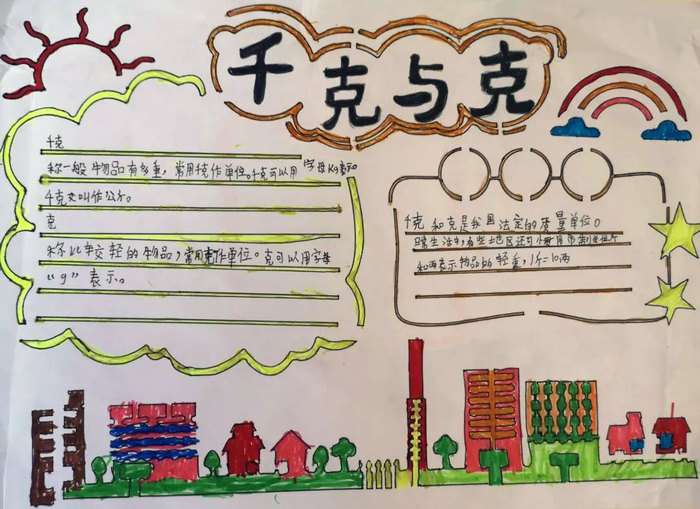 千克与克
千克
称一般物品有多重，常用千克作单位。千克可以用字母Kg表示
千克又叫作公斤。
克
称比较轻的物品，常用克作单位。克可以用字母
“g”表示。
千克和克是我国法定的质量单位。
生活中有些地区还
和两表示物品的轻重，1斤=10两